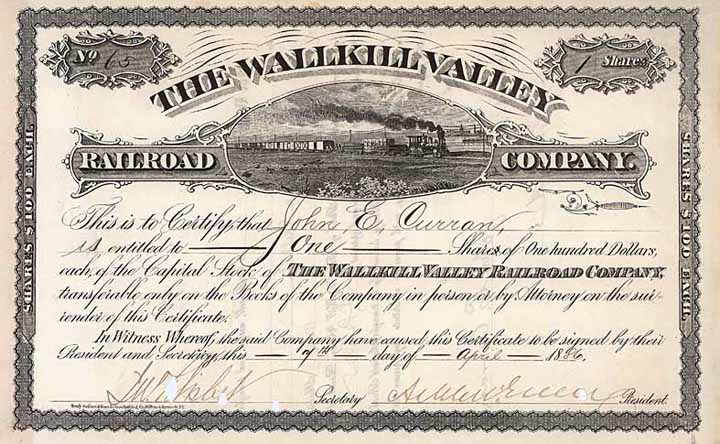 No 65
1 Shares
THE WALLKILL VALLEY
RAILROAD COMPANY.
SHARES $100 EACH.
SHARES $100 EACH.
This is to Certify that John E. Curran,
is entitled to One Shares of One hundred Dollars,
each, of the Capital Stock of THE WALLKILL VALLEY RAILROAD COMPANY,
transferable only on the Books of the Company in person or by Attorney on the sur-
render of this Certificate.
In Witness Whereof, the said Company have caused this Certificate to be signed by their
President and Secretary, this 7th day of April 1886
Secretary
President.